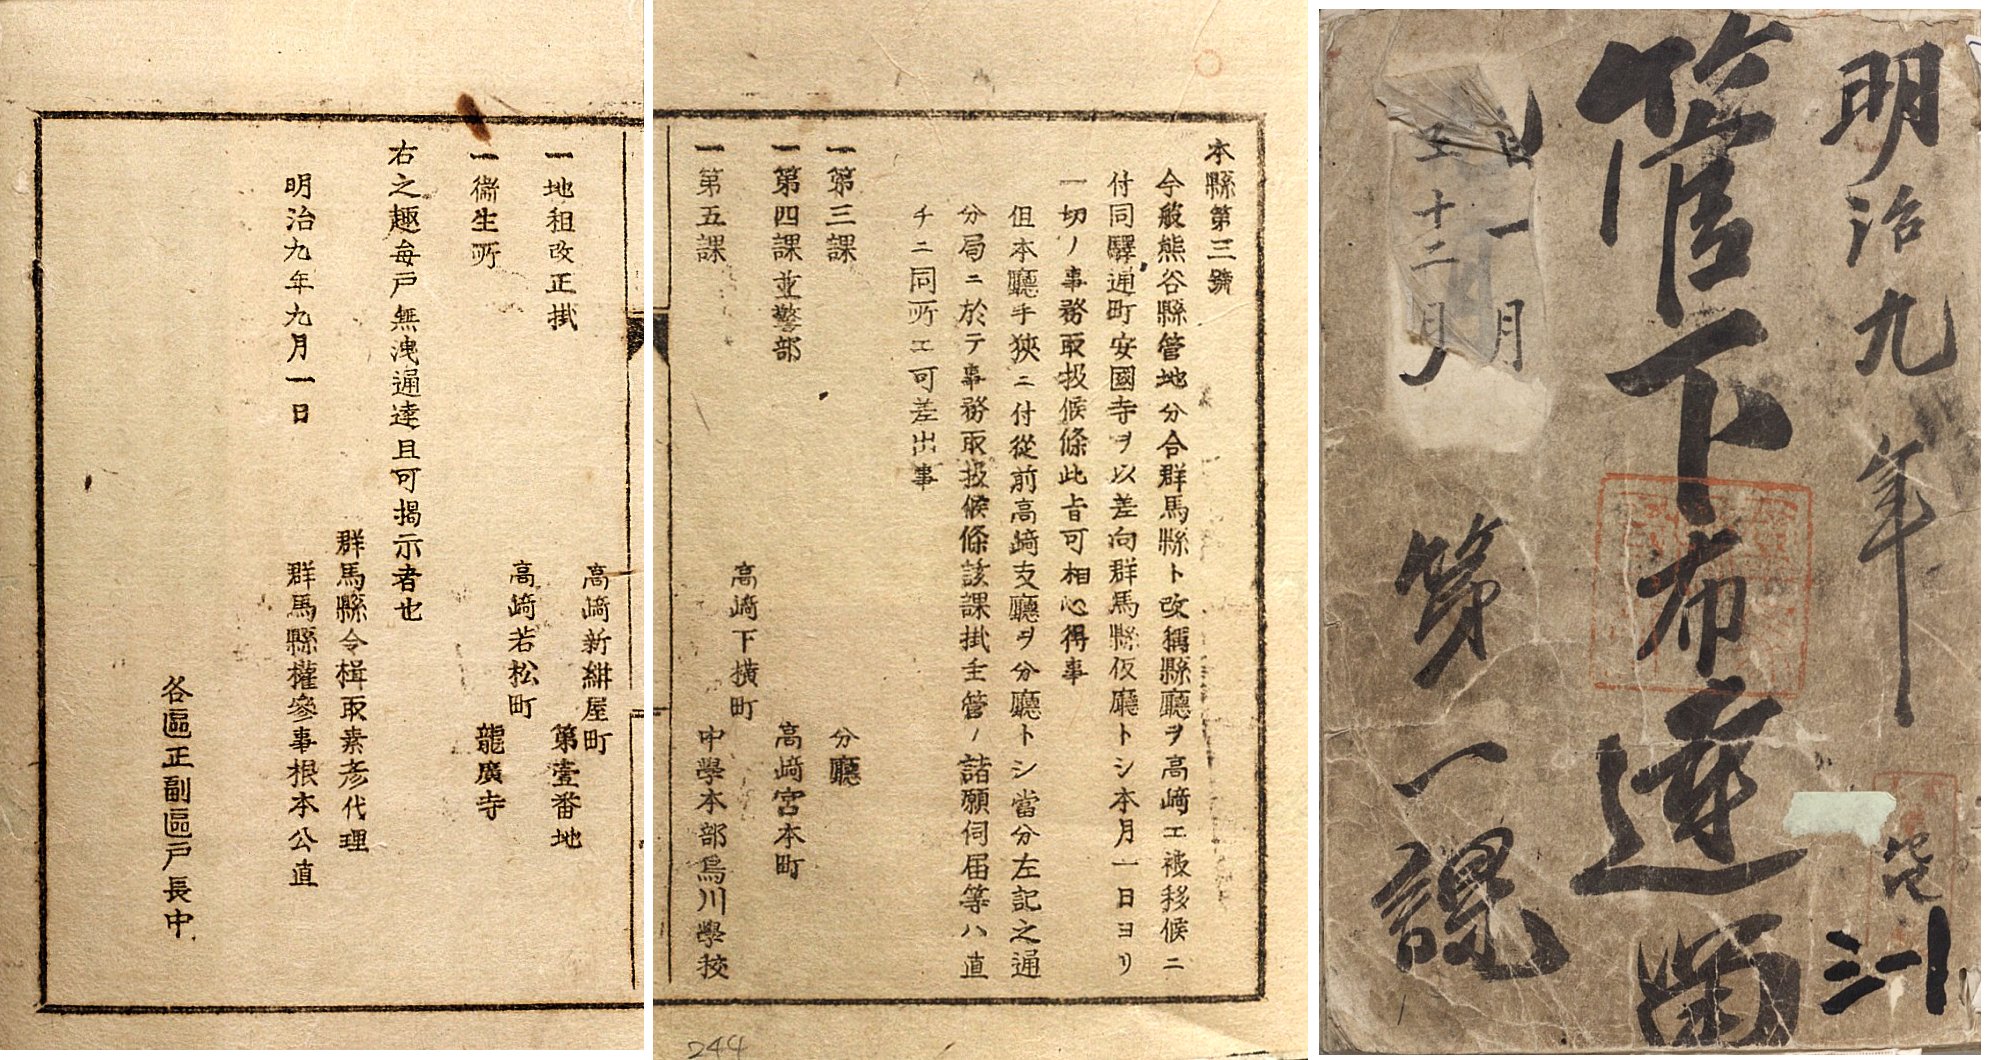 明治九年
管下布達留
第一課
一月
十二月
本縣第三號
今般熊谷縣管地分合群馬縣ト改稱縣廳ヲ高崎エ被移候ニ
付同驛通町安國寺ヲ以差向群馬縣仮廳トシ本月一日ヨリ
一切ノ事務取扱候條此旨可相心得事
但本廳手狹ニ付從前高崎支廳ヲ分廳トシ當分左記之通
分局ニ於テ事務取扱候條該課掛主管ノ諸願伺届等ハ直
チニ同所エ可差出事
一第三課 分廳
一第四課並警部 高崎宮本町
高崎下横町
一第五課 中學本部烏川學校
244
高崎新紺屋町
一地租改正掛 第壹番地
高崎若松町
一衞生所 龍廣寺
右之趣毎戸無洩通達且可揭示者也
群馬縣令楫取素彦代理
明治九年九月一日 群馬縣權參事根本公直
各區正副區戸長中